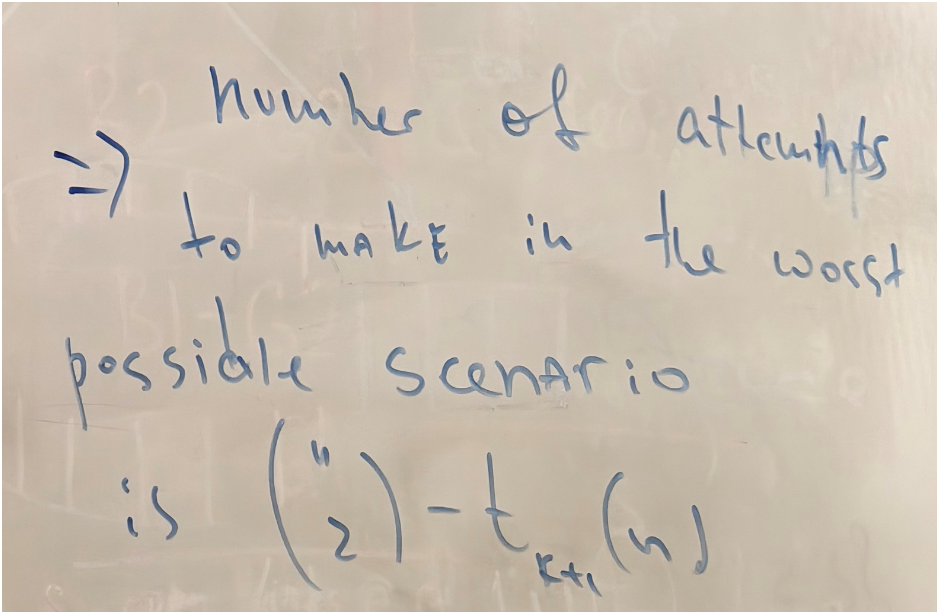 number of attempts
⇒ to make in the worst
possible scenario
is (n 2) - t_{k+1}(n)